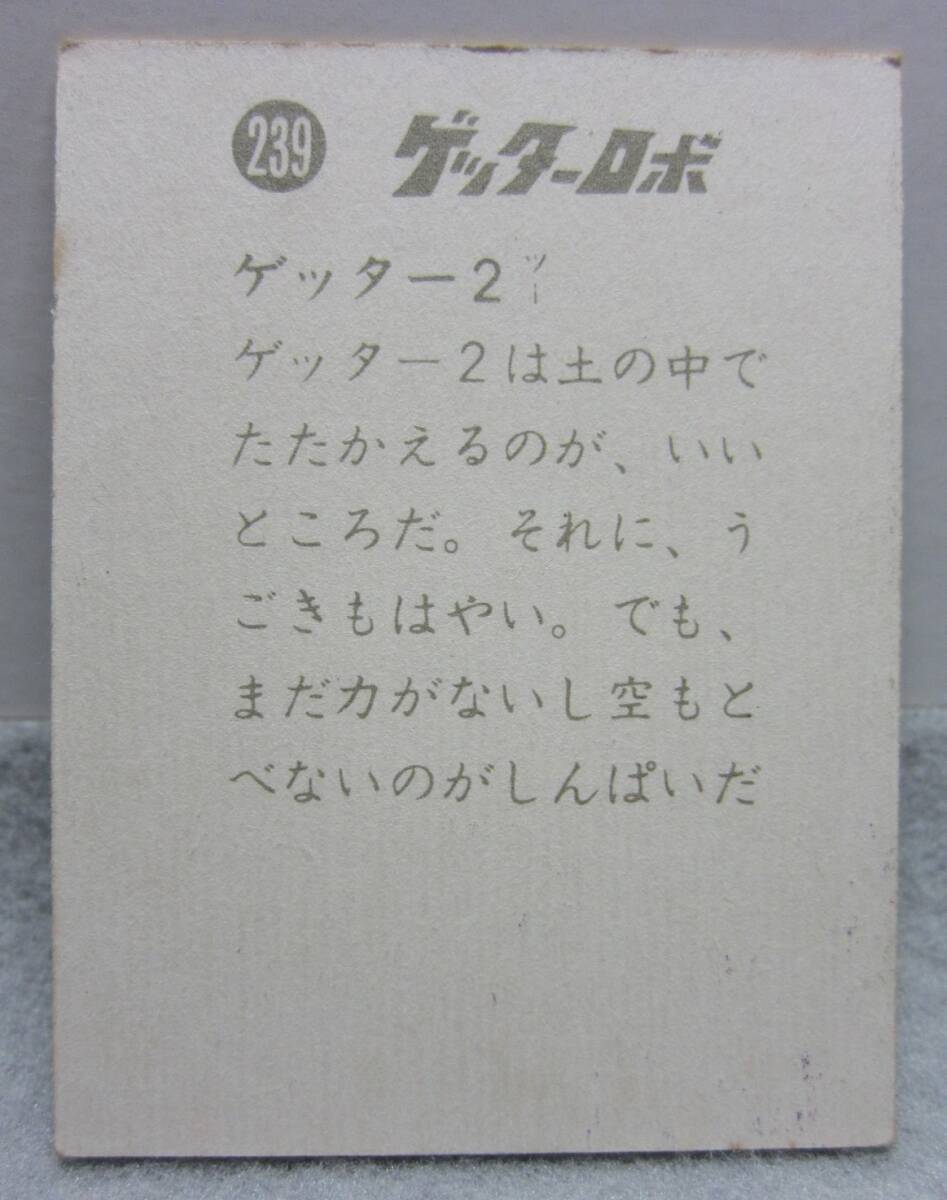 239 ゲッターロボ
ゲッター2 ツー
ゲッター2は土の中で
たたかえるのが、いい
ところだ。それに、う
ごきもはやい。でも、
まだ力がないし空もと
べないのがしんぱいだ